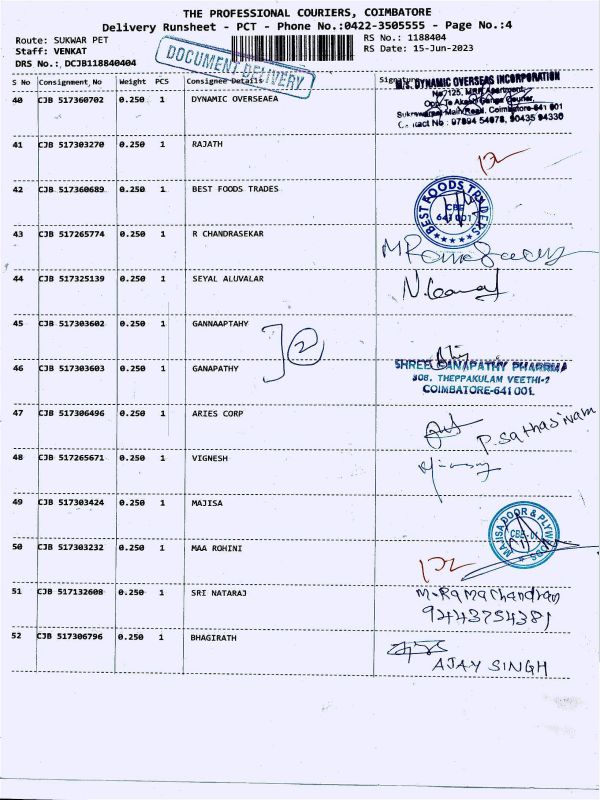 THE PROFESSIONAL COURIERS, COIMBATORE
Delivery Runsheet - PCT - Phone No.:0422-3505555 - Page No.:4
Route: SUKWAR PET
RS No.: 1188404
Staff: VENKAT
RS Date: 15-Jun-2023
DRS No.: DCJB118840404
DOCUMENT DELIVERY
S No Consignment No Weight PCS Consignee Details Signature
M/S. DYNAMIC OVERSEAS INCORPORATION
40 CJB 517360702 0.250 1 DYNAMIC OVERSEAEA
41 CJB 517303270 0.250 1 RAJATH
42 CJB 517360689 0.250 1 BEST FOODS TRADES
BEST FOODS TRADERS
CBE
641 001
43 CJB 517265774 0.250 1 R CHANDRASEKAR
44 CJB 517325139 0.250 1 SEYAL ALUVALAR
45 CJB 517303602 0.250 1 GANNAAPTAHY
2
46 CJB 517303603 0.250 1 GANAPATHY
SHREE GANAPATHY PHARRMA
308, THEPPAKULAM VEETHI-2
COIMBATORE-641 001.
47 CJB 517306496 0.250 1 ARIES CORP
P. Sathasivam
48 CJB 517265671 0.250 1 VIGNESH
49 CJB 517303424 0.250 1 MAJISA
MAJISA DOOR & PLYWOODS
CBE-01
50 CJB 517303232 0.250 1 MAA ROHINI
51 CJB 517132608 0.250 1 SRI NATARAJ
M. Ramachandran
9443754381
52 CJB 517306796 0.250 1 BHAGIRATH
AJAY SINGH